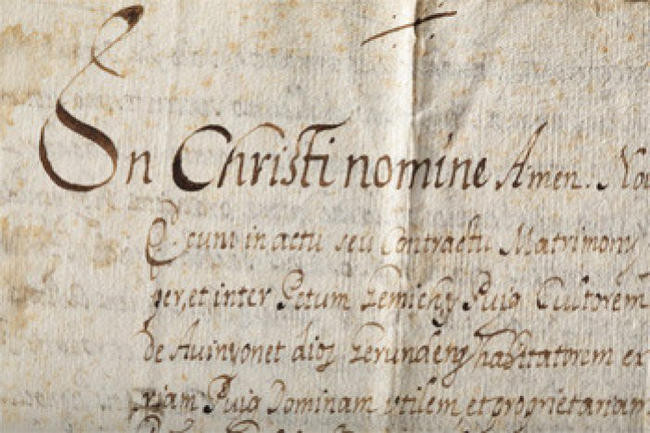 In Christi nomine Amen. Nov
in actu seu Contractu Matrimony
per, et inter Petum Puig Cultorem
de Avinyonet habitatorem ex
riam Puig Dominam utilem, et proprietariam